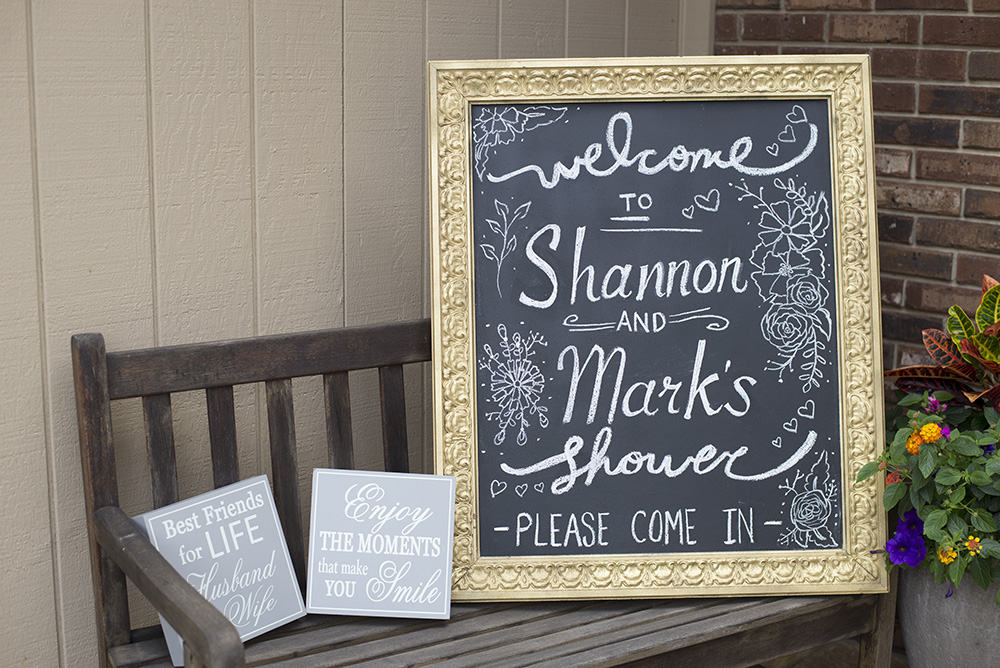 welcome
TO
Shannon
AND
Mark's
Shower
-PLEASE COME IN-
Best Friends
for LIFE
Husband
Wife
Enjoy
THE MOMENTS
that make
YOU Smile